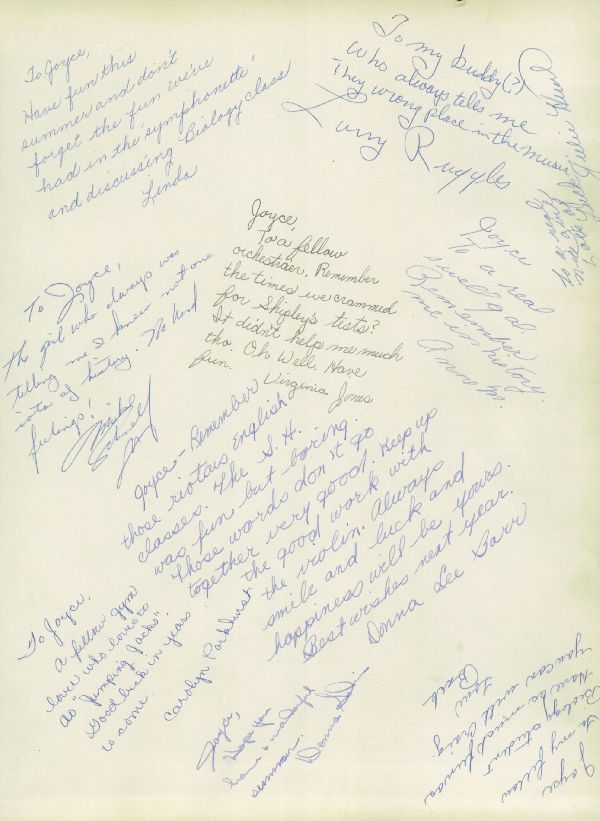 To Joyce,
Have fun this
summer and don't
forget the fun we've
had in the symphonette,
and discussing Biology class
Linda
To my buddy(?)
who always tells me
They wrong place in the music
Larry Ruggles
To a real
nice
Luck Julie
Joyce,
To a fellow
orchestraer. Remember
the times we crammed
for Shipley's tists?
It didn't help me much
tho. Oh Well. Have
fun.
Virginia Jones
Joyce
To a real
swell gal
Remember
me in history.
Ann M.
To Joyce,
The girl who always was
telling me I knew not one
iota of history. No hard
feelings!
Mike
Joyce - Remember
those riotous English
classes. The S.H.
was fun but boring.
Those words don't go
together very good. Keep up
the good work with
the violin. Always
smile and luck and
happiness will be yours.
Best wishes next year.
Donna Lee Barr
To Joyce,
A fellow gym
lover who loves to
do "Jumping Jacks".
Good luck in years
to come.
Carolyn Parkhurst
Joyce,
Hope you
have a wonderful
summer.
Donna
Joyce
to my fellow
Biology student
Have as much fun as
you can with Craig.
Love
Barb